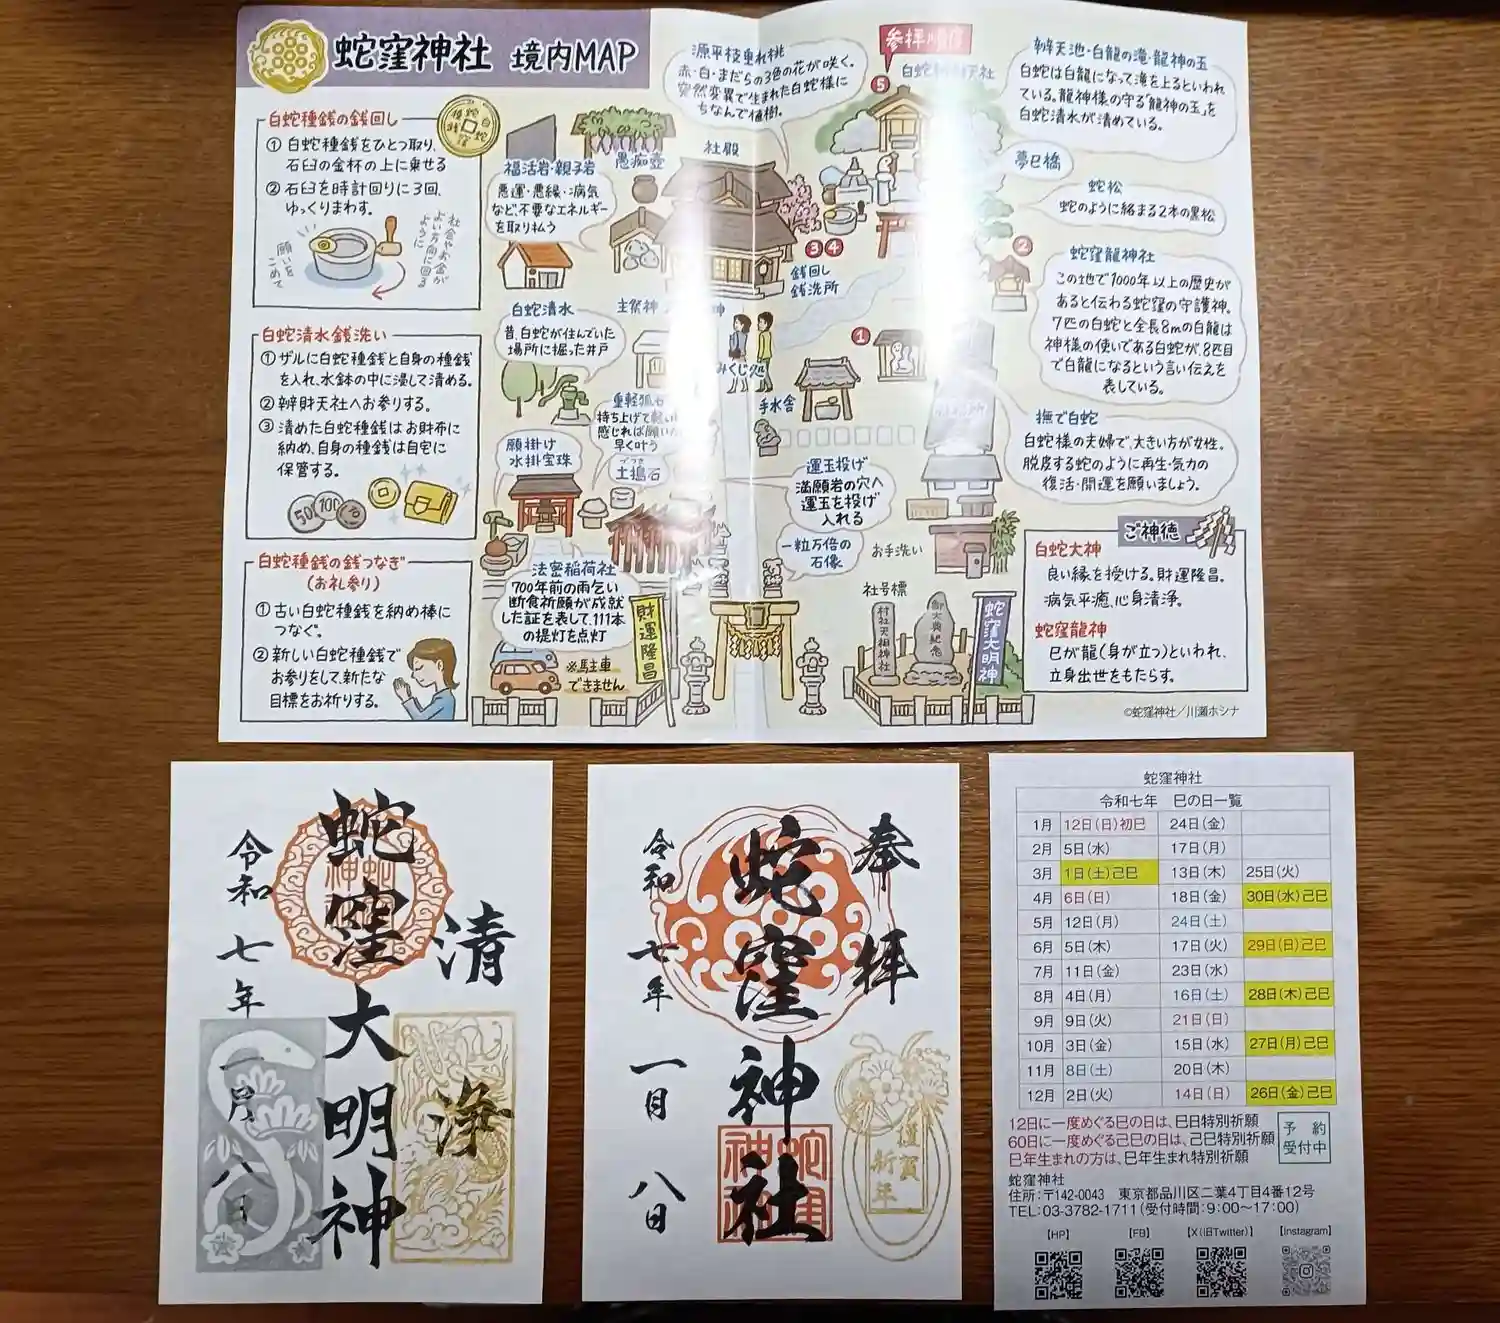 蛇窪神社 境内MAP
白蛇種銭の銭回し
① 白蛇種銭をひとつ取り、
石臼の金杯の上に乗せる
② 石臼を時計回りに3回、
ゆっくりまわす。
願いを
こめて
社会やお金が
よい方向に回る
ように
白蛇清水銭洗い
① ザルに白蛇種銭と自身の種銭
を入れ、水鉢の中に浸して清める。
② 辨財天社へお参りする。
③ 清めた白蛇種銭はお財布に
納め、自身の種銭は自宅に
保管する。
50
100
10
白蛇種銭の銭つなぎ
(お礼参り)
① 古い白蛇種銭を納め棒に
つなぐ。
② 新しい白蛇種銭で
お参りをして、新たな
目標をお祈りする。
福活岩・親子岩
悪運・悪縁・病気
など、不要なエネルギー
を取り払う
愚痴壺
源平枝垂れ桃
赤・白・まだらの3色の花が咲く。
突然変異で生まれた白蛇様に
ちなんで植樹。
社殿
参拝順序
⑤
辨天池・白龍の滝・龍神の玉
白蛇は白龍になって滝を上るといわれ
ている。龍神様の守る「龍神の玉」を
白蛇清水が清めている。
夢巳橋
蛇松
蛇のように絡まる2本の黒松
②
蛇窪龍神社
この地で1000年以上の歴史が
あると伝わる蛇窪の守護神。
7匹の白蛇と全長8mの白龍は
神様の使いである白蛇が、8匹目
で白龍になるという言い伝えを
表している。
③④
銭回し
銭洗所
白蛇清水
昔、白蛇が住んでいた
場所に掘った井戸
①
みくじ処
手水舎
重軽狐石
持ち上げて軽い
感じれば願いが
早く叶う
撫で白蛇
白蛇様の夫婦で、大きい方が女性。
脱皮する蛇のように再生・気力の
復活・開運を願いましょう。
願掛け
水掛宝珠
どつき
土搗石
運玉投げ
満願岩の穴へ
運玉を投げ
入れる
一粒万倍の
石像
お手洗い
法密稲荷社
700年前の雨乞い
断食祈願が成就
した証を表して、111本
の提灯を点灯
※駐車
できません
財運隆昌
社号標
村社天祖神社
御大典紀念
蛇窪大明神
ご神徳
白蛇大神
良い縁を授ける。財運隆昌。
病気平癒、心身清浄。
蛇窪龍神
巳が龍(身が立つ)といわれ、
立身出世をもたらす。
©蛇窪神社/川瀬ホシナ
清
浄
蛇窪大明神
令和七年一月八日
奉拝
蛇窪神社
令和七年一月八日
謹賀
新年
蛇窪神社
令和七年 巳の日一覧
1月 12日(日)初巳 24日(金)
2月 5日(水) 17日(月)
3月 1日(土)己巳 13日(木) 25日(火)
4月 6日(日) 18日(金) 30日(水)己巳
5月 12日(月) 24日(土)
6月 5日(木) 17日(火) 29日(日)己巳
7月 11日(金) 23日(水)
8月 4日(月) 16日(土) 28日(木)己巳
9月 9日(火) 21日(日)
10月 3日(金) 15日(水) 27日(月)己巳
11月 8日(土) 20日(木)
12月 2日(火) 14日(日) 26日(金)己巳
12日に一度めぐる巳の日は、巳日特別祈願
60日に一度めぐる己巳の日は、己巳特別祈願
巳年生まれの方は、巳年生まれ特別祈願
予約
受付中
蛇窪神社
住所:〒142-0043 東京都品川区二葉4丁目4番12号
TEL:03-3782-1711(受付時間:9:00〜17:00)
【HP】 【FB】 【X(旧Twitter)】 【instagram】